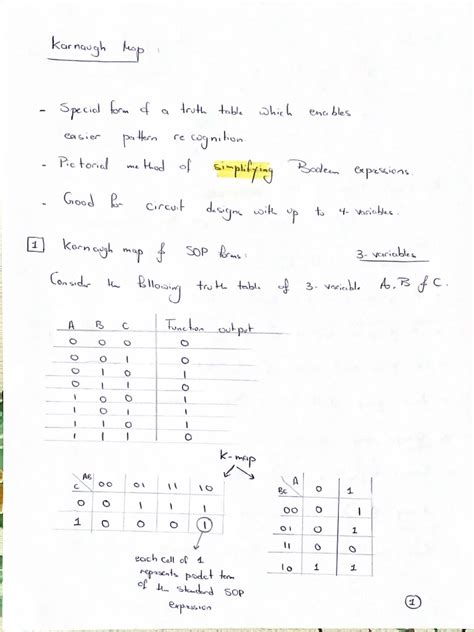 Karnaugh Map.
- Special form of a truth table which enables
easier pattern recognition.
- Pictorial method of simplifying Boolean expressions.
- Good for circuit designs with up to 4-variables.
1 Karnaugh map of SOP forms: 3-variables
Consider the following truth table of 3-variable A, B & C.
A B C Function output
0 0 0 0
0 0 1 0
0 1 0 1
0 1 1 0
1 0 0 1
1 0 1 1
1 1 0 1
1 1 1 0
K-map
AB 00 01 11 10
C
0 0 1 1 1
1 0 0 0 1
A 0 1
BC
00 0 1
01 0 1
11 0 0
10 1 1
each cell of 1
represents product term
of the standard SOP
expression
1